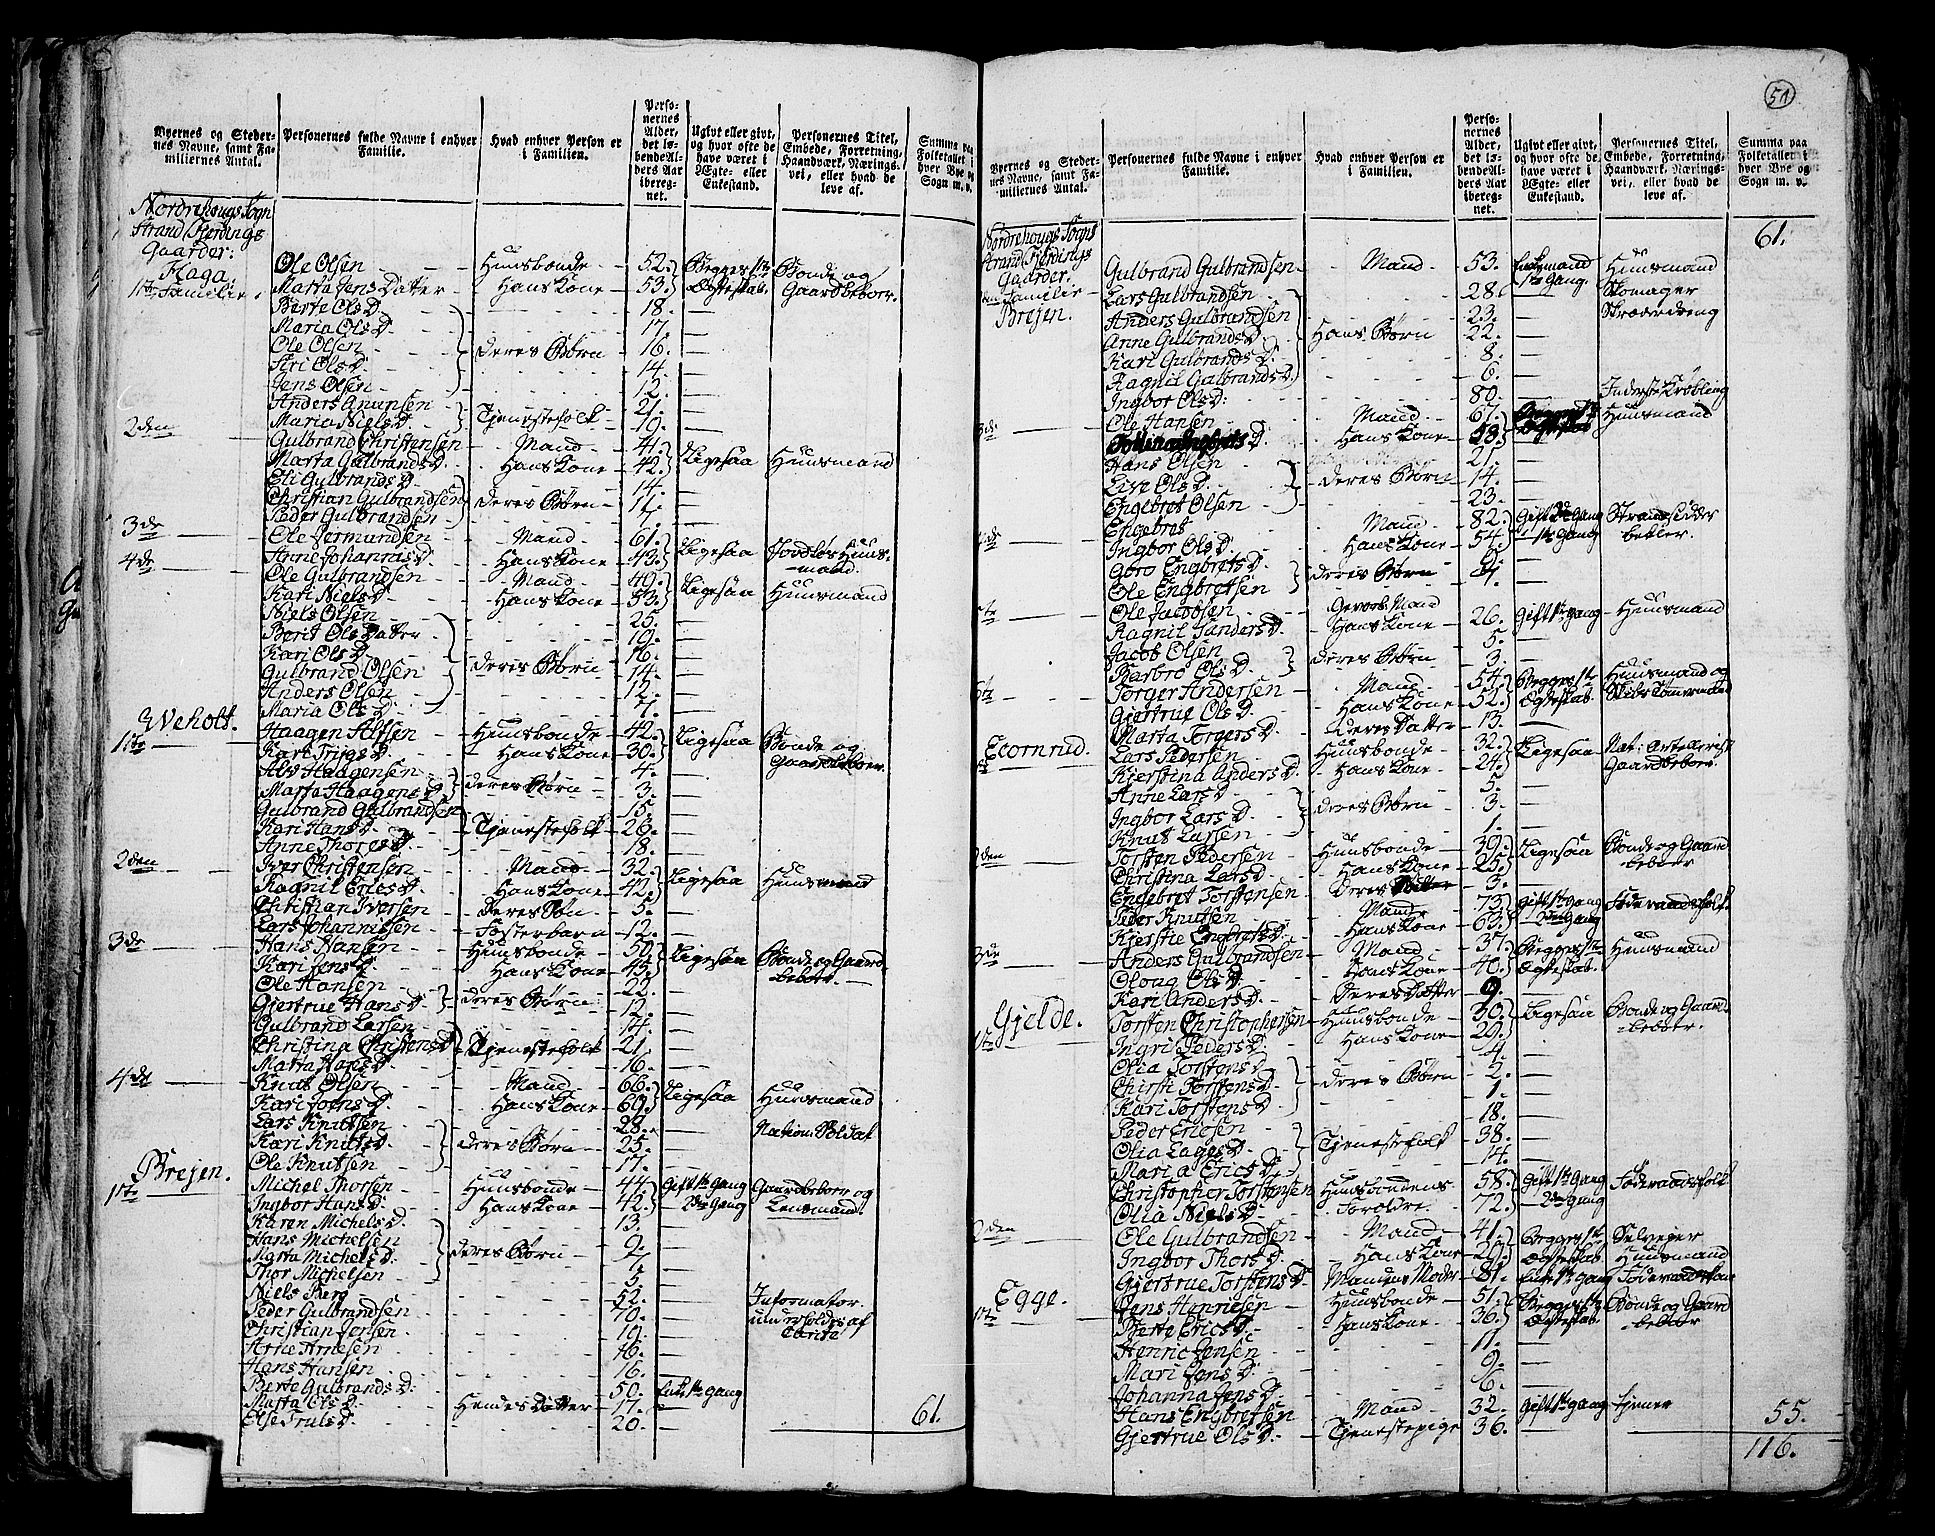 Byernes og Steder-
nes Navne, samt Fa-
miliernes Antal.
Personernes fulde Navne i enhver
Familie.
Hvad enhver Person er
i Familien.
Perso-
nernes
Alder,
det lø-
bende Al-
ders Aar
ibereg-
net.
Ugivt eller givt,
og hvor ofte de
have været i
Ægte- eller
Enkestand.
Personernes Titel,
Embede, Forretning,
Haandværk, Nærings-
vei, eller hvad de
leve af.
Summa paa
Folketallet i
hver Bye og
Sogn m. v.
Nordrehougs Sogn
Strand Fierdings
Gaarder:
Haga
1ste Familie.
Ole Olsen Huusbonde 52. Begge i 1te Bonde og
Marta Jens Datter Hans Kone 53. Ægtestab. Gaardbeboer.
Berte Ols D. 18. —
Maria Ols D. 17. —
Ole Olsen deres Børn 16. —
Siri Ols D. 14. —
Jens Olsen 12. —
Anders Anunsen Tjenestefolk 21. —
Maria Niels D. 19. —
2den Gulbrand Christensen Mand 41. Ligesaa Huusmand
Marta Gulbrands D. Hans Kone 42.
Eli Gulbrands D. 14. —
Christian Gulbrandsen deres Børn 11. —
Peder Gulbrandsen 7. —
3de Ole Jermundsen Mand 61. Ligesaa Jordløs Huus-
mand.
Anne Johannis D. Hans Kone 43.
4de Ole Gulbrandsen Mand 49. Ligesaa Huusmand
Kari Niels D. Hans Kone 53.
Niels Olsen 25. —
Berit Ols Datter 19. —
Kari Ols D. deres Børn 16. —
Gulbrand Olsen 14. —
Anders Olsen 12. —
Maria Ols D. 7. —
Weholt.
1ste Haagen Alfsen Huusbonde 42. Ligesaa Bonde og
Kari Trigs D. Hans Kone 30. Gaardbeboer.
Alv Haagensen deres Børn 4. —
Marta Haagens D. 3. —
Gulbrand Gulbrandsen 15. —
Kari Hans D. Tjenestefolk 26. —
Anne Thores D. 18. —
2den Iver Christensen Mand 32. Ligesaa Huusmand
Ragnil Erics D. Hans Kone 42.
Christian Iversen deres Søn 5. —
Lars Johannissen Fosterbarn 12. —
3de Hans Hansen Huusbonde 50. Ligesaa Bonde og Gaard-
beboer.
Kari Jens D. Hans Kone 45.
Ole Hansen deres Børn 22. —
Gjertrue Hans D. 12. —
Gulbrand Larsen 14. —
Christina Christens D. Tjenestefolk 21. —
Marta Hans D. 16. —
4de Knut Olsen Mand 66. Ligesaa Huusmand
Kari Joens D. Hans Kone 69.
Lars Knutsen 28. — Nation: Soldat
Kari Knuts D. deres Børn 25. —
Ole Knutsen 17. —
Brejen.
1ste Michel Thorsen Huusbonde 44. Gift 1te Gang Gaardbeboer og
Ingbor Hans D. Hans Kone 42. 2den Gang Lensmand.
Karen Michels D. 13. —
Hans Michelsen deres Børn 9. —
Marta Michels D. 7. —
Thor Michelsen 5. —
Niels Berg 52. — Informator
Peder Gulbrandsen 70. — underholdes af
Christian Jensen 19. —
Arne Arnesen 46. —
Hans Hansen 16. —
Berte Gulbrands D. 50. Enke 1te Gang
Marta Ols D. Hendes Datter 17. —
Else Truls D. 20. —
61.
51
Byernes og Steder-
nes Navne, samt Fa-
miliernes Antal.
Personernes fulde Navne i enhver
Familie.
Hvad enhver Person er
i Familien.
Perso-
nernes
Alder,
det lø-
bende Al-
ders Aar
ibereg-
net.
Ugivt eller givt,
og hvor ofte de
have været i
Ægte- eller
Enkestand.
Personernes Titel,
Embede, Forretning,
Haandværk, Nærings-
vei, eller hvad de
leve af.
Summa paa
Folketallet i
hver Bye og
Sogn m. v.
61.
Nordrehougs Sogns
Strand Fierdings
Gaarder.
Familie
Brejen.
Gulbrand Gulbrandsen Mand 53. Enkemand 1te Gang. Huusmand
Lars Gulbrandsen 28. — Skomager
Anders Gulbrandsen 23. —
Anne Gulbrands D. Hans Børn 22. —
Kari Gulbrands D. 8. —
Ragnil Gulbrands D. 6. —
Ingbor Ols D. 80. — Inderste Krøbling
3de Ole Hansen Mand 67. Huusmand
Hans Kone 58.
Hans Olsen 21. —
Live Ols D. deres Børn 14. —
Engebret Olsen 23. —
Engebret Mand 82. Gift 2de Gang
Ingbor Ols D. Hans Kone 54. 1te Gang
Goro Engbrets D. deres Børn 9. —
Ole Engbretsen —
Ole Jacobsen Gevorb. Mand 26. Gift 1te Gang Huusmand
Ragnil Sanders D. Hans Kone
Jacob Olsen deres Børn 5. —
Barbro Ols D. 3. —
6te Torger Andersen Mand 54. Begge i 1te Huusmand og
Gjertrue Ols D. Hans Kone 52. Ægtestab.
Marta Torgers D. deres Datter 13. —
Ecornrud.
Lars Pedersen Huusbonde 32. Ligesaa Nat: Art:
Kjerstina Anders D. Hans Kone 24. Gaardbeboer.
Anne Lars D. 5. —
Ingbor Lars D. deres Børn 3. —
Knut Larsen 1. —
2den Torsten Pedersen Huusbonde 39. Ligesaa Bonde og Gaard-
beboer
Christina Lars D. Hans Kone 25.
Engebret Torstensen deres 3. —
Peder Knutsen Mand 73. Gift 1te Gang Føderaadsfolk.
Kjerstie Engbrets D. Hans Kone 63. 2den Gang
3de Anders Gulbrandsen Mand 37. Begge i 1te Huusmand
Oloug Ols D. Hans Kone 40. Ægtestab.
Kari Anders D. deres Datter 9. —
Gjelde.
1ste Torsten Christophersen Huusbonde 30. Ligesaa Bonde og Gaard-
beboer.
Ingri Peders D. Hans Kone 29.
Olia Torstens D. 4. —
Chirsti Torstens D. deres Børn 2. —
Kari Torstens D. 1. —
Peder Ericsen 18. —
Olia Lages D. Tjenestefolk 38. —
Maria Erics D. 14. —
Christopher Torstensen Huusbondens 58. Gift 1te Gang Føderaadsfolk
Olia Niels D. Foroldre 72. 2den Gang
2den Ole Gulbrandsen Mand 41. Begge i 1te Selveyer
Ingbor Thors D. Hans Kone 29. Ægteskab Huusmand
Gjertrue Torstens D. Mandens Moder 81. Enke 1te Gang
Egge.
1ste Jens Henricsen Huusbonde 51. Begge i 1te Bonde og Gaard-
beboer
Berte Erics D. Hans Kone 36. Ægtestab.
Henric Jensen 11. —
Mari Jens D. 9. —
Johanna Jens D. 6. —
Hans Engbretsen Mand 32. Gift 1te Gang tjener
Gjertrue Ols D. Tjenestepige 36. —
55.
116.